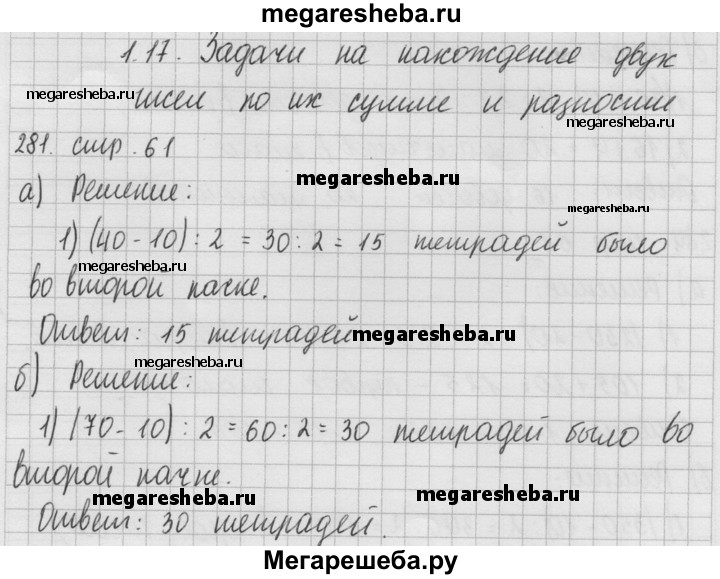 megaresheba.ru
1.17. Задачи на нахождение двух
megaresheba.ru
чисел по их сумме и разности
megaresheba.ru
281. стр. 61
megaresheba.ru
а) Решение:
megaresheba.ru
1) (40-10) : 2 = 30 : 2 = 15 тетрадей было
megaresheba.ru
во второй пачке.
Ответ: 15 тетрадей
megaresheba.ru
megaresheba.ru
б) Решение:
1) (70-10) : 2 = 60 : 2 = 30 тетрадей было во
второй пачке.
megaresheba.ru
megaresheba.ru
Ответ: 30 тетрадей.
Мегарешеба.ру